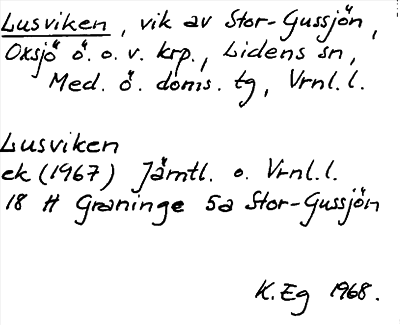 Lusviken, vik av Stor-Gussjön,
Oxsjö ö. o. v. krp., Lidens sn,
Med. ö. doms. tg, Vrnl.l.
Lusviken
ek (1967) Jämtl. o. Vrnl.l.
18 H Graninge 5a Stor-Gussjön
K.Eg 1968.